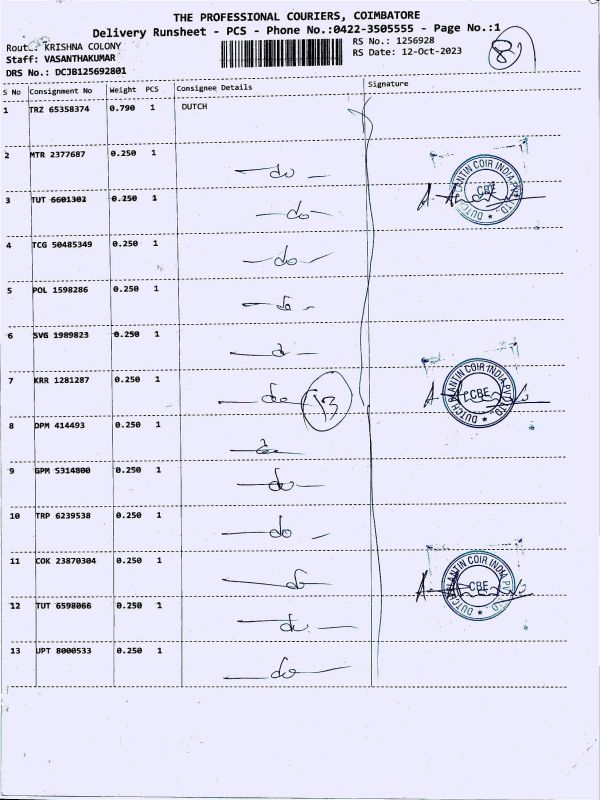 THE PROFESSIONAL COURIERS, COIMBATORE
Delivery Runsheet - PCS - Phone No.:0422-3505555 - Page No.:1
Route: KRISHNA COLONY
RS No.: 1256928
Staff: VASANTHAKUMAR
RS Date: 12-Oct-2023
DRS No.: DCJB125692801
S No Consignment No Weight PCS Consignee Details Signature
1 TRZ 65358374 0.790 1 DUTCH
2 MTR 2377687 0.250 1 do
3 TUT 6601302 0.250 1 do
4 TCG 50485349 0.250 1 do
5 POL 1598286 0.250 1 do
6 SVG 1989823 0.250 1 do
7 KRR 1281287 0.250 1 do
13
8 DPM 414493 0.250 1 do
9 GPM 5314800 0.250 1 do
10 TRP 6239538 0.250 1 do
11 COK 23870304 0.250 1 do
12 TUT 6598066 0.250 1 do
13 UPT 8000533 0.250 1 do
DUTCH PLANTIN COIR INDIA PVT LTD
CBE
DUTCH PLANTIN COIR INDIA PVT LTD
CBE
DUTCH PLANTIN COIR INDIA PVT LTD
CBE